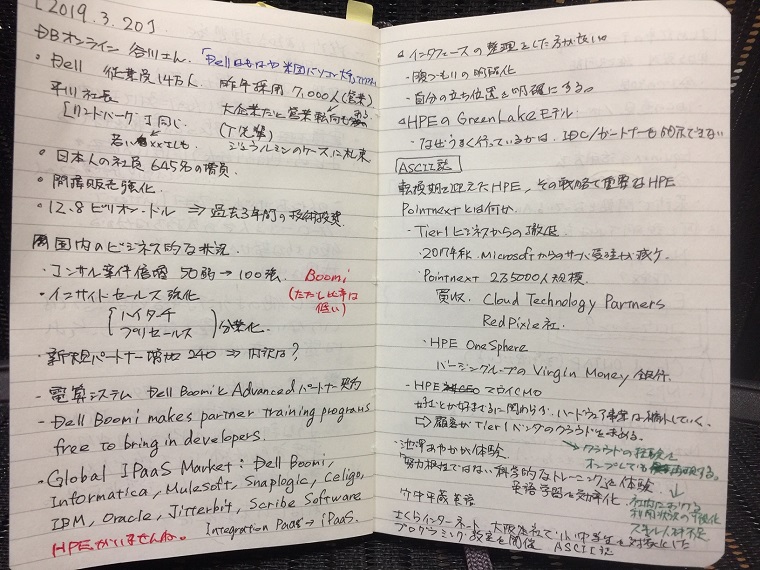 [2019.3.20]
DBオンライン 谷川さん、「Dellはもはや米国パソコン大手
・Dell 従業員14万人 昨年採用 7,000人(営業)
平川社長 大企業だと営業転向も
[リンドバーグ]同じ。 (T先輩)
若い ジュラルミンのケースに札束
・日本人の社員 645名の増員
・間接販売強化。
・12.8ビリオン・ドル ⇒ 過去3年間の技術投資
国内のビジネス的な状況。
・コンサル案件倍増 50弱→100強 Boomi
・インサイドセールス強化 (ただし比率は
[ハイタッチ 低い)
プリセールス] 分業化。
・新規パートナー増加 240 ⇒ 内訳は?
- 電算システム Dell BoomiとAdvancedパートナー契約
- Dell Boomi makes partner training programs
free to bring in developers.
・Global IPaaS Market: Dell Boomi,
Informatica, Mulesoft, Snaplogic, Celigo,
IBM, Oracle, Jitterbit, Scribe Software
HPEがいませんね。 Integration PaaS → iPaaS.
インタフェースの整理をした方がよい
・腹づもりの明確化
・自分の立ち位置を明確にする。
HPEのGreenLakeモデル
・なぜうまく行っているかは、IDC/ガートナーも明示できない
ASCII誌
転換期を迎えたHPE、その戦略で重要なHPE
Pointnextとは何か。
・Tier1ビジネスからの撤退
・2017年秋、Microsoftからのサーバ受注が減少。
・Pointnext 235000人規模。
買収 Cloud Technology Partners
RedPixie社.
・HPE OneSphere
バージングループのVirgin Money 銀行.
- HPE マロイCMO
好むとか好まざるに関わらず、ハードウェア事業は縮小していく。
↳ 顧客がTier1ベンダのクラウドを求める。
クラウドの経験を
オンプレでも再現する。
・池澤あやかが体験
努力根性ではない科学的なトレーニングを体験.
英語学習を効率化
社内における
利用状況の可視化
スキル人材不足
竹中平蔵
さくらインターネット 大阪本社で小中学生を対象にした
プログラミング教室を開催 ASCII誌